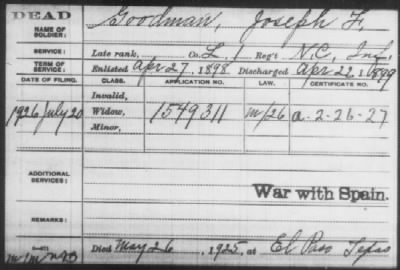 DEAD
NAME OF SOLDIER: Goodman, Joseph F.
SERVICE: Late rank, Co. L, 1 Reg't N.C. Inf.
TERM OF SERVICE: Enlisted Apr 27, 1898 Discharged Apr 22, 1899
DATE OF FILING. CLASS. APPLICATION NO. LAW. CERTIFICATE NO.
Invalid,
1926 July 20 Widow, 1549311 m/26 a-2-26-27
Minor,
ADDITIONAL SERVICES:
War with Spain.
REMARKS:
Died May 26, 1925, at El Paso Texas